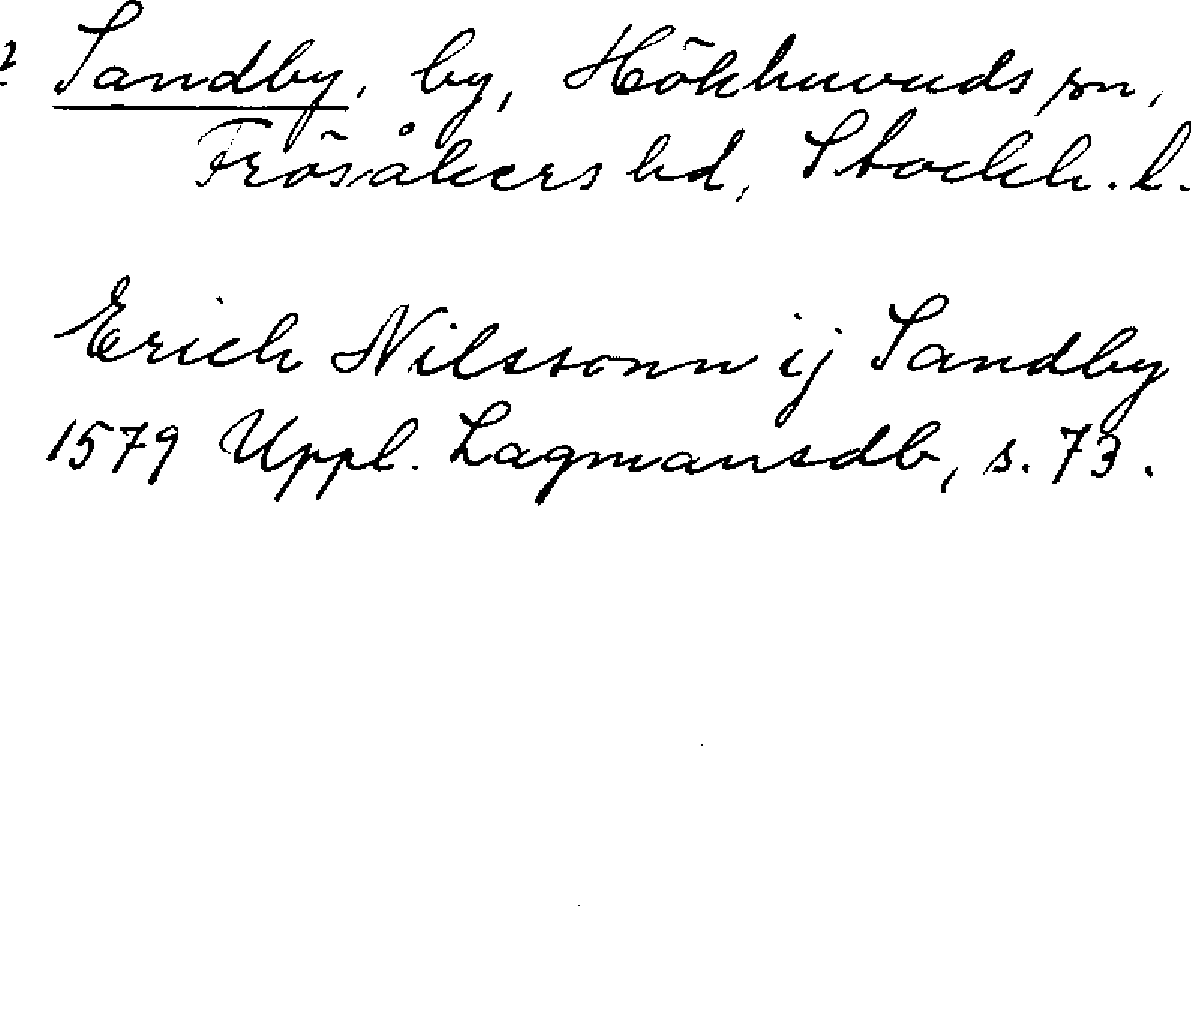 Sandby, by, Hökhuvuds sn,
Frösåkers hd, Stockh. l.
Erich Nilssonn ij Sandby
1579 Uppl. Lagmansdb, s. 73.